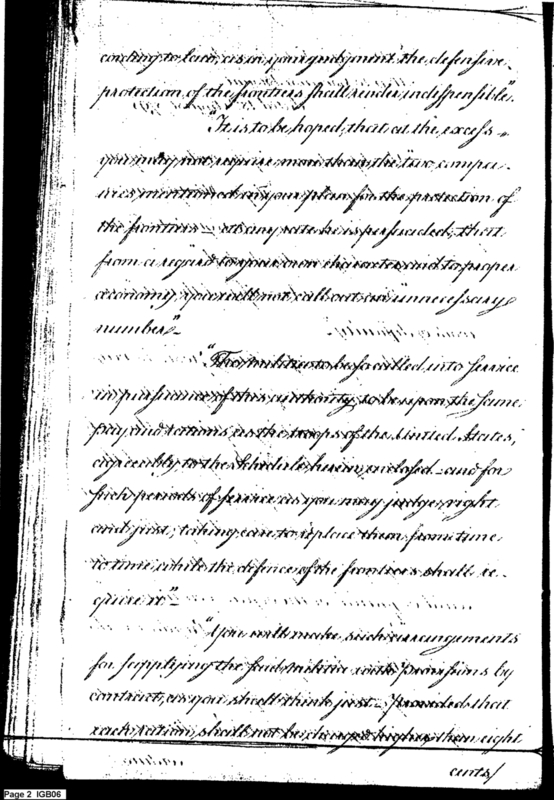 cording to law, as in your judgment the defensive
protection of the frontiers shall render indispensible".
"It is to be hoped, that at the excess
you may not require more than the two compa-
nies mentioned in your plan for the protection of
the frontiers – at any rate he is persuaded, that
from a regard to your own character, and to proper
œconomy, you will not call out an unnecessary
number"
"The militia to be so called into service
in pursuance of this authority, to be upon the same
pay and rations as the troops of the United States,
agreeably to the Schedule herein enclosed – and for
such periods of service as you may judge right
and just, taking care to replace them from time
to time while the defence of the frontiers shall re-
quire it"–
"You will make such arrangements
for supplying the said militia with provisions by
contract, as you shall think just – Provided that
each ration, shall not be charged higher than eight
cents/
Page 2 IGB06